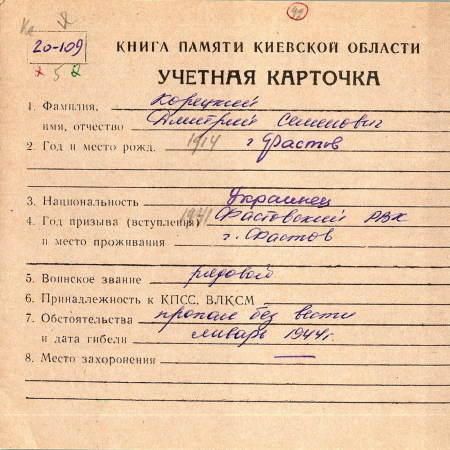 20-109
КНИГА ПАМЯТИ КИЕВСКОЙ ОБЛАСТИ
УЧЕТНАЯ КАРТОЧКА
1. Фамилия, Корецкий
имя, отчество Дмитрий Семенович
2. Год и место рожд. 1914 г Фастов
3. Национальность Украинец
4. Год призыва (вступления) 1941 Фастовский РВК
и место проживания г. Фастов
5. Воинское звание рядовой
6. Принадлежность к КПСС. ВЛКСМ
7. Обстоятельства пропал без вести
и дата гибели январь 1944г.
8. Место захоронения —